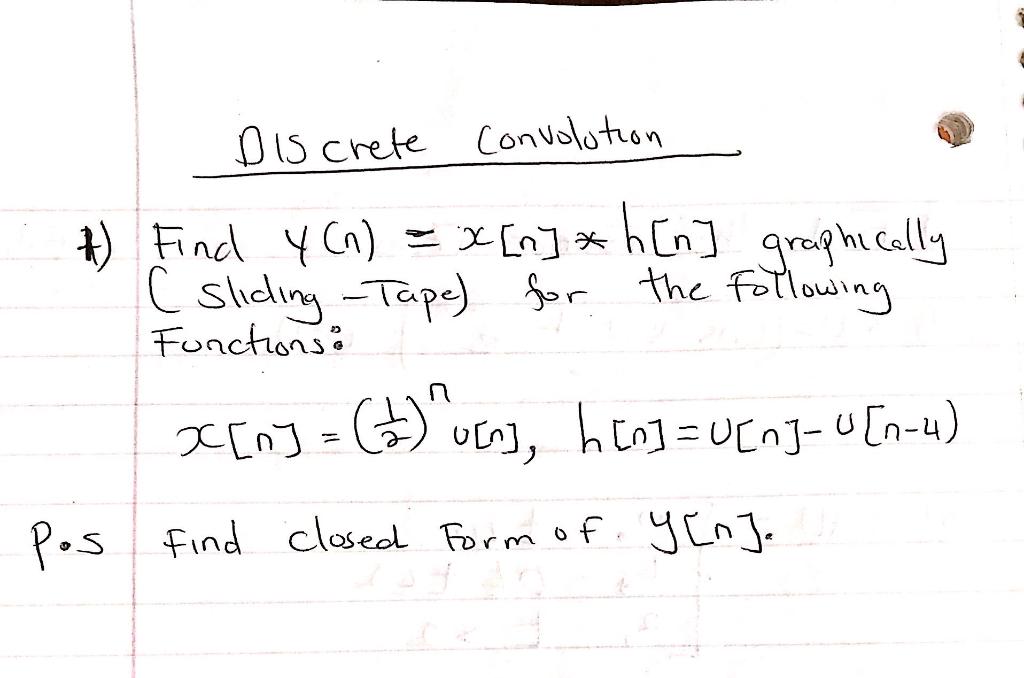 Discrete Convolution
1) Find y(n) = x[n] * h[n] graphically
(Sliding-Tape) for the following
Functions:
x[n] = (1/2)^n u[n], h[n] = u[n] - u[n-4)
P.s Find closed Form of y[n].